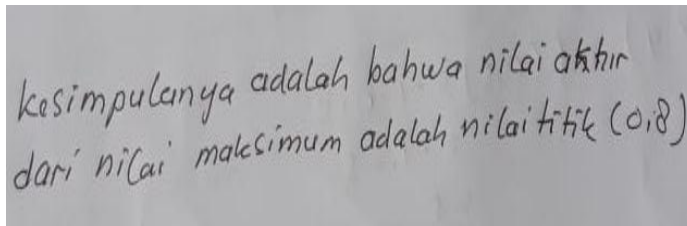 kesimpulanya adalah bahwa nilai akhir
dari nilai maksimum adalah nilai titik (0,8)